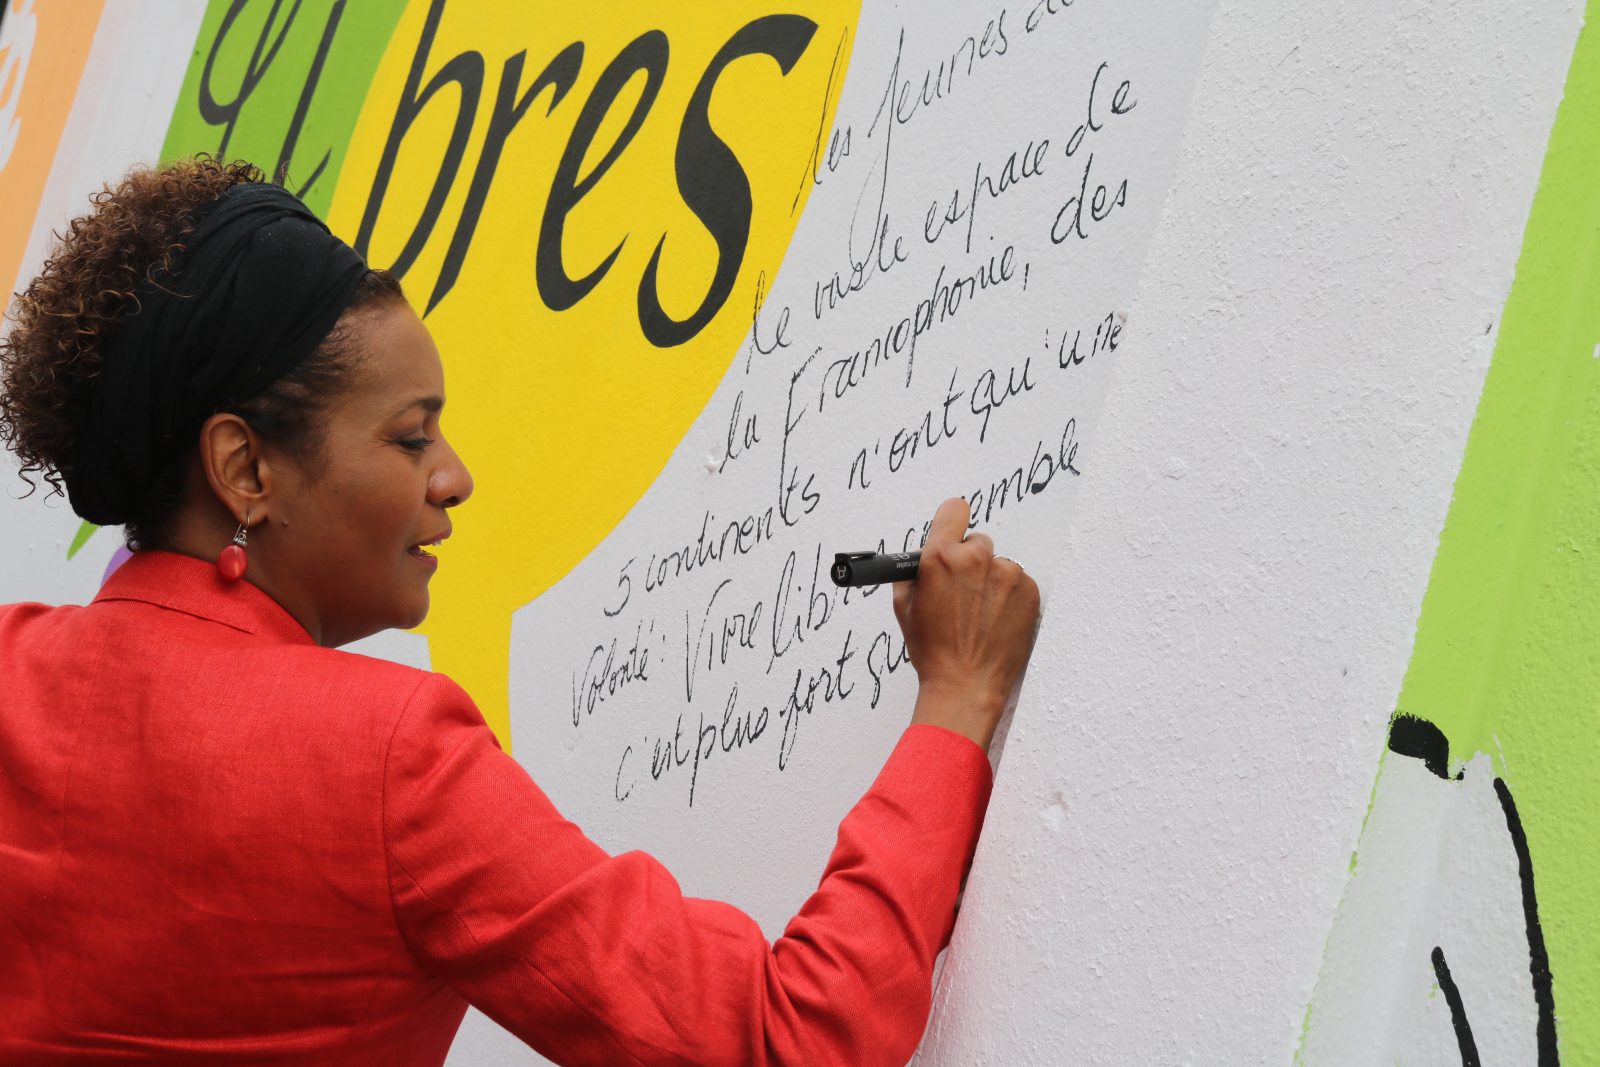 libres
les jeunes de
le vaste espace de
la Francophonie, des
5 continents n'ont qu'une
Volonté : Vivre libres ensemble
c'est plus fort qu